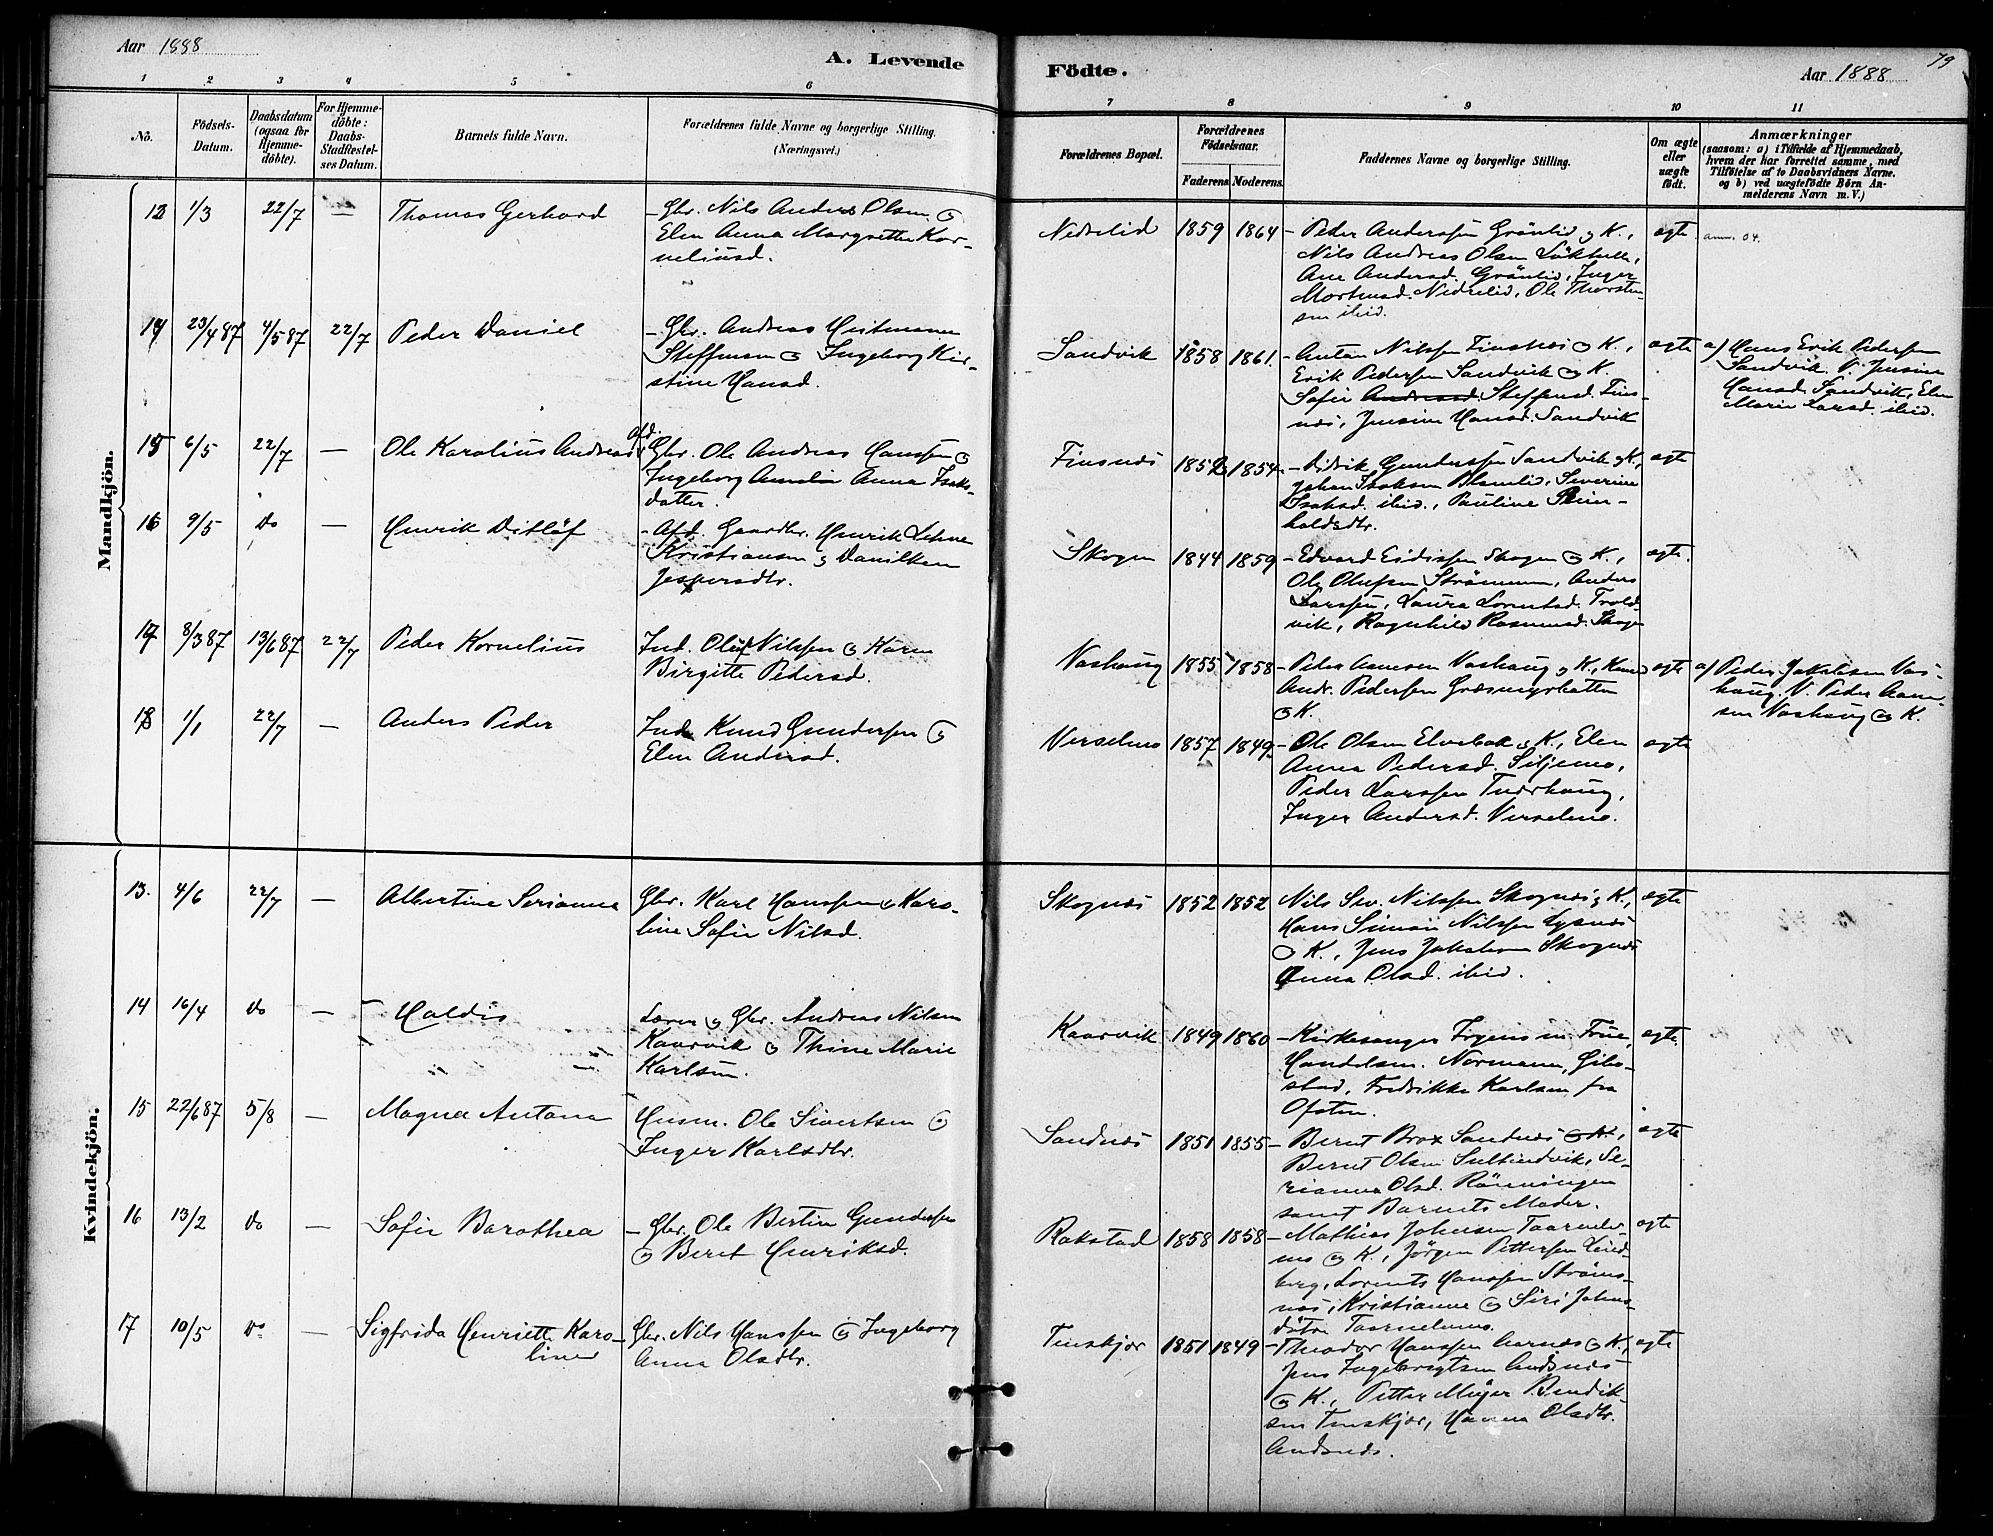 Aar 1888
A. Levende
Födte.
Aar 1888
79
1 2 3 4 5 6 7 8 9 10 11
No.
Födsels-
Datum.
Daabsdatum
(ogsaa for
Hjemme-
döbte).
For Hjemme-
döbte:
Daabs-
Stadfæstel-
ses Datum.
Barnets fulde Navn.
Forældrenes fulde Navne og borgerlige Stilling.
(Næringsvei.)
Forældrenes Bopæl.
Forældrenes
Födselsaar.
Faderens. Moderens.
Faddernes Navne og borgerlige Stilling.
Om ægte
eller
uægte
födt.
Anmærkninger
(saasom: a) i Tilfælde af Hjemmedaab,
hvem der har forrettet samme, med
Tilföielse af to Daabsvidners Navne.
og b) ved uægtefödte Börn An-
melderens Navn m. V.)
Mandkjön.
13 1/3 22/7 — Thomas Gerhard
– Gbr. Nils Anders Olsen &
Elen Anna Margrethe Kor-
neliusd.
Nedrelid 1859 1864
– Peder Anderssen Grönlid & K.,
Nils Andreas Olsen
Ane Andersd. Grönlid, Inger
Mortensd. Nedrelid, Ole Thorsten-
sen ibid.
ægte
anm. 04.
14 23/4 87 4/5 87 22/7 Peder Daniel
– Gbr. Andreas Heitmann
Steffensen & Ingeborg Kir-
stine Hansd.
Sandvik 1858 1861.
– Anton Nilssen Finsnes & K.,
Erik Pedersen Sandvik & K.
Sofie Andreasd. Steffensd. Fins-
nes, Jensine Hansd. Sandvik
ægte
a) Hans Erik Pedersen
Sandvik. V. Jensine
Hansd. Sandvik, Elen
Marie Larsd. ibid.
15 6/5 22/7 — Ole Karolius Andreas
afd.
Gbr. Ole Andreas Hanssen &
Ingeborg Amalia Anna Isaks-
datter.
Finsnes 1852 1854.
– Didrik Gunderssen Sandvik & K.,
Johan Isaksen Blamlid, Severine
Isaksd. ibid., Pauline Rein-
holdsdtr.
ægte
16 9/5 do — Henrik Ditlöf
– Afd. Gaardbr. Henrik Lehne
Kristiansen & Danilken
Jespersdtr.
Skogen 1844 1859
– Edvard Eidissen Skogen & K.,
Ole Olufsen Strömmen, Anders
Larssen, Laura Lorentsd. Trold-
vik, Ragnhild Rasmusd. Skogen
ægte.
17 8/3 87 13/6 87 22/7 Peder Kornelius
Ind. Oluf Nilssen & Karen
Birgitte Pedersd.
Vashaug 1855 1858
– Peder Aamsen Vashaug & K., Knud
Andr. Pedersen Græsmyrbakken
& K.
ægte
a) Peder Jakobsen Vas-
haug. V. Peder Aam-
sen Vashaug & K.
18 1/1 22/7 — Anders Peder
Ind. Knud Gundersen &
Elen Andersd.
Verselmo 1857 1849
– Ole Olsen Elvebak & K., Elen
Anna Pedersd. Siljemo,
Peder Larssen Tverhaug,
Inger Andersd. Verselmo.
ægte
Kvindekjön.
13. 4/6 22/7 — Albertine Serianna
Gbr. Karl Hanssen & Karo-
line Sofie Nilsd.
Skognes 1852 1852
Nils Sev. Nilssen Skognes & K.,
Hans Simon Nilssen Lysnes
& K., Jens Jakobsen Skognes
Anna Olsd. ibid.
ægte
14 16/4 do — Haldis
Lærer & Gbr. Andreas Nilsen
Kaarvik & Thine Marie
Karlsen.
Kaarvik 1849 1860
– Kirkesanger Irgens m. Frue,
Handelsm. Normann, Gibo-
stad, Fredrikke Karlsen fra
Ofoten.
ægte.
15 22/6 87 5/8 — Magna Antona
Husm. Ole Sivertsen &
Inger Karlsdtr.
Sandnes 1851 1855
– Bernt Brox Sandnes & K.,
Bernt Olsen Sultindvik, Se-
rianna Olsd. Rönningen
samt Barnets Moder.
ægte
16 13/2 do — Sofie Barothea
– Gbr. Ole Bertin Gundersen
& Beret Henriksd.
Rakstad 1858 1858
– Mathias Johnsen Taarnelv-
mo & K., Jörgen Pettersen Lind-
berg, Lorents Hanssen Ströms-
nes, Kristianne & Siri Johns-
døtre Taarnelvmo.
ægte
17 10/5 do — Sigfrida Henriette Karo-
line
Gbr. Nils Hanssen & Ingeborg
Anna Olsdtr.
Finskjor 1851 1849
– Theodor Hanssen Aarnes & K.,
Jens Ingebrigtsen Andsnes
& K., Petter Meyer Bendik-
sen Finskjor, Hanna Olsdtr.
Andsnes.
ægte